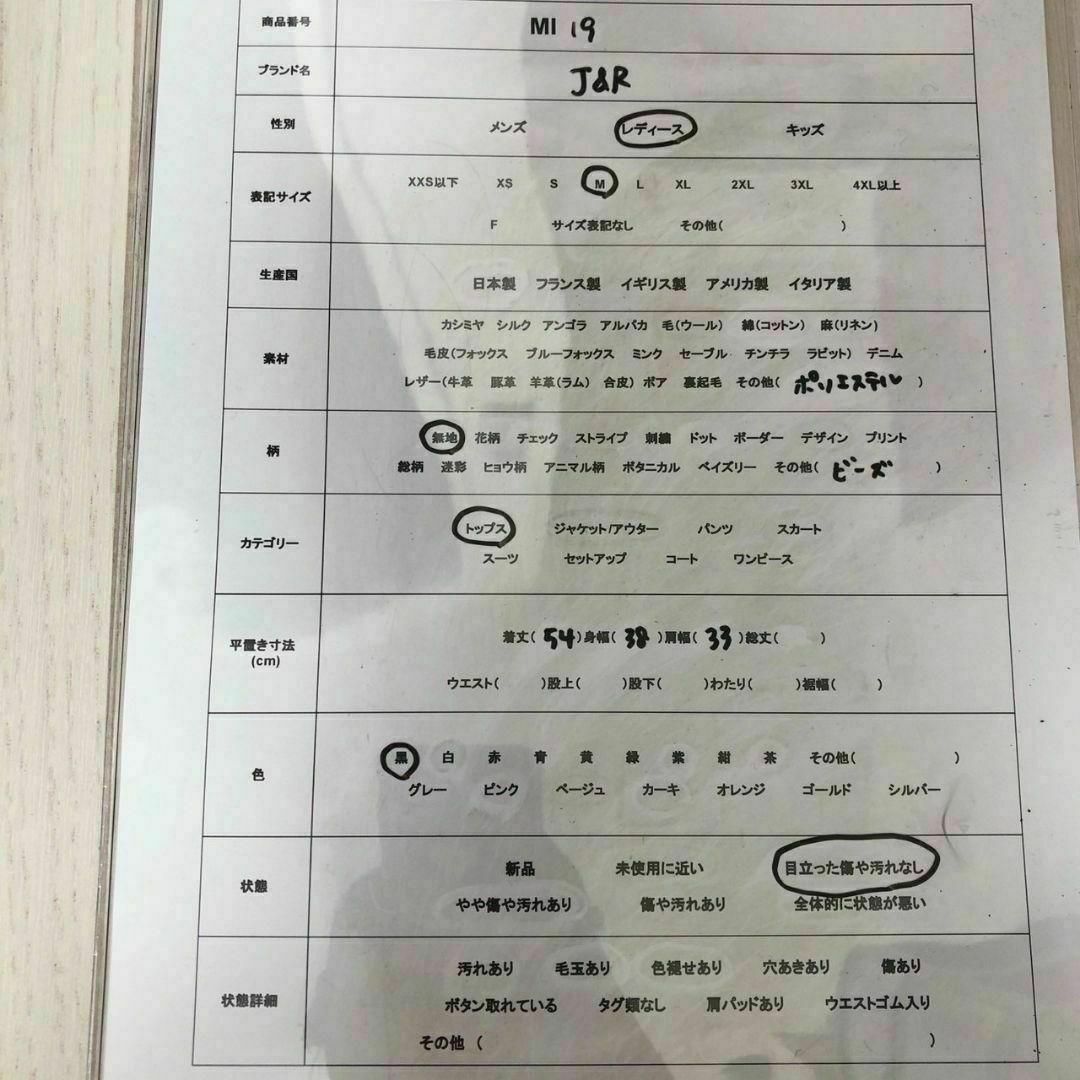 商品番号 MI 19
ブランド名 J&R
性別 メンズ レディース キッズ
表記サイズ XXS以下 XS S M L XL 2XL 3XL 4XL以上
F サイズ表記なし その他( )
生産国 日本製 フランス製 イギリス製 アメリカ製 イタリア製
素材 カシミヤ シルク アンゴラ アルパカ 毛(ウール) 綿(コットン) 麻(リネン)
毛皮(フォックス ブルーフォックス ミンク セーブル チンチラ ラビット) デニム
レザー(牛革 豚革 羊革(ラム) 合皮) ボア 裏起毛 その他( ポリエステル )
柄 無地 花柄 チェック ストライプ 刺繍 ドット ボーダー デザイン プリント
総柄 迷彩 ヒョウ柄 アニマル柄 ボタニカル ペイズリー その他( ビーズ )
カテゴリー トップス ジャケット/アウター パンツ スカート
スーツ セットアップ コート ワンピース
平置き寸法 (cm) 着丈( 54 )身幅( 38 )肩幅( 33 )総丈( )
ウエスト( )股上( )股下( )わたり( )裾幅( )
色 黒 白 赤 青 黄 緑 紫 紺 茶 その他( )
グレー ピンク ベージュ カーキ オレンジ ゴールド シルバー
状態 新品 未使用に近い 目立った傷や汚れなし
やや傷や汚れあり 傷や汚れあり 全体的に状態が悪い
状態詳細 汚れあり 毛玉あり 色褪せあり 穴あきあり 傷あり
ボタン取れている タグ類なし 肩パッドあり ウエストゴム入り
その他 ( )